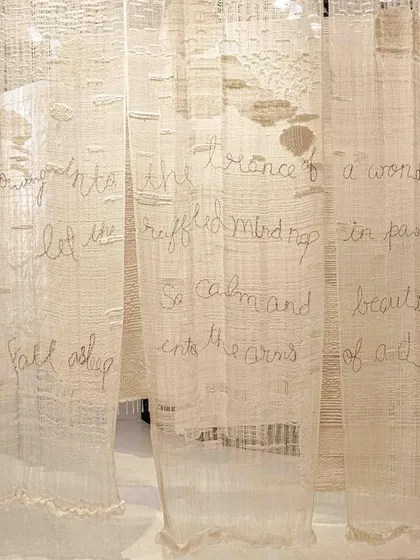 into the trance of a wond
let the ruffled mind nap in pas
So calm and beauti
fall asleep into the arms of a d